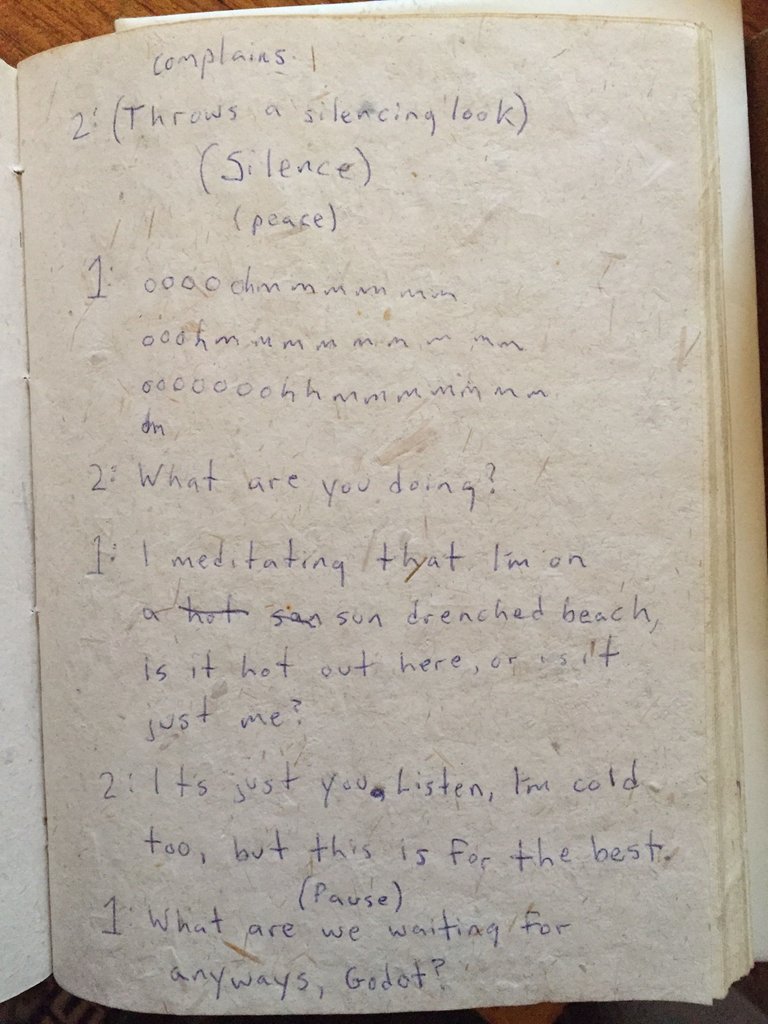 complains.
2: (Throws a silencing look)
(Silence)
(peace)
1: oooo ohmmmmmmm
ooohmmmmmmmmm
ooooooohhmmmmmmmm
2: What are you doing?
1: I meditating that I'm on
a hot san sun drenched beach,
is it hot out here, or is it
just me?
2: Its just you. Listen, I'm cold
too, but this is for the best.
(Pause)
1: What are we waiting for
anyways, Godot?